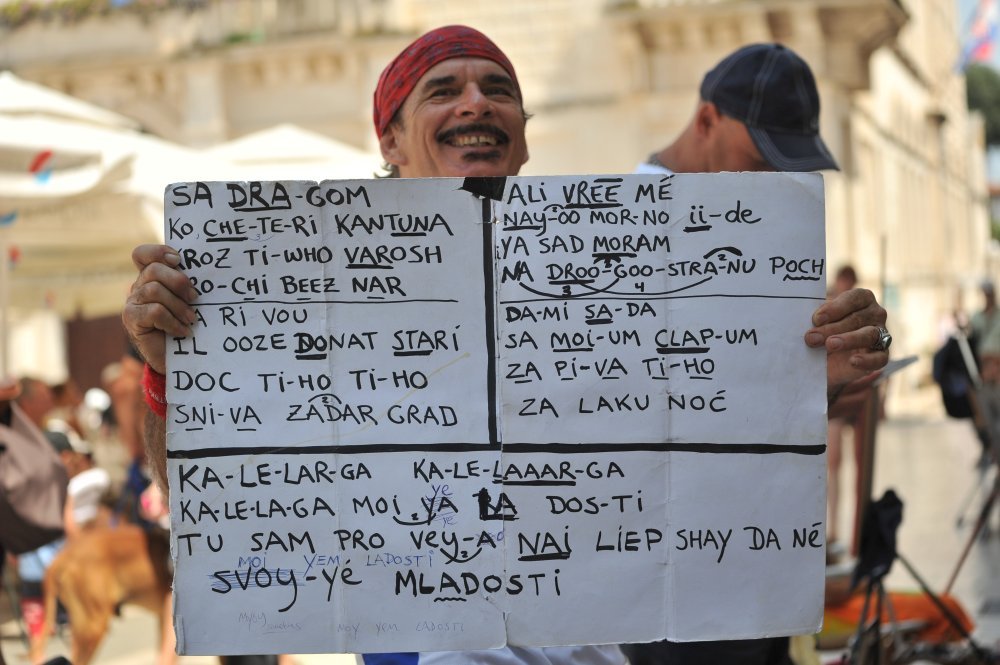 SA DRA-GOM
KO CHE-TE-RI KANTUNA
KROZ TI-WHO VAROSH
RO-CHI BEEZ NAR
A RI VOU
IL OOZE DONAT STARI
DOC TI-HO TI-HO
SNI-VA ZADAR GRAD
ALI VREE MÉ
NAY-OO MOR-NO ii-de
YA SAD MORAM
NA DROO-GOO-STRA-NU POCH
2 3 4 2
DA-MI SA-DA
SA MOI-UM CLAP-UM
ZA PI-VA TI-HO
ZA LAKU NOĆ
KA-LE-LAR-GA KA-LE-LAAAR-GA
ye
KA-LE-LA-GA MOI YA LA DOS-TI
TU SAM PRO vey-A NAI LIEP SHAY DA NÉ
MOI YEM LADOSTI
SVOY-yé MLADOSTI
MOY YEM LADOSTI